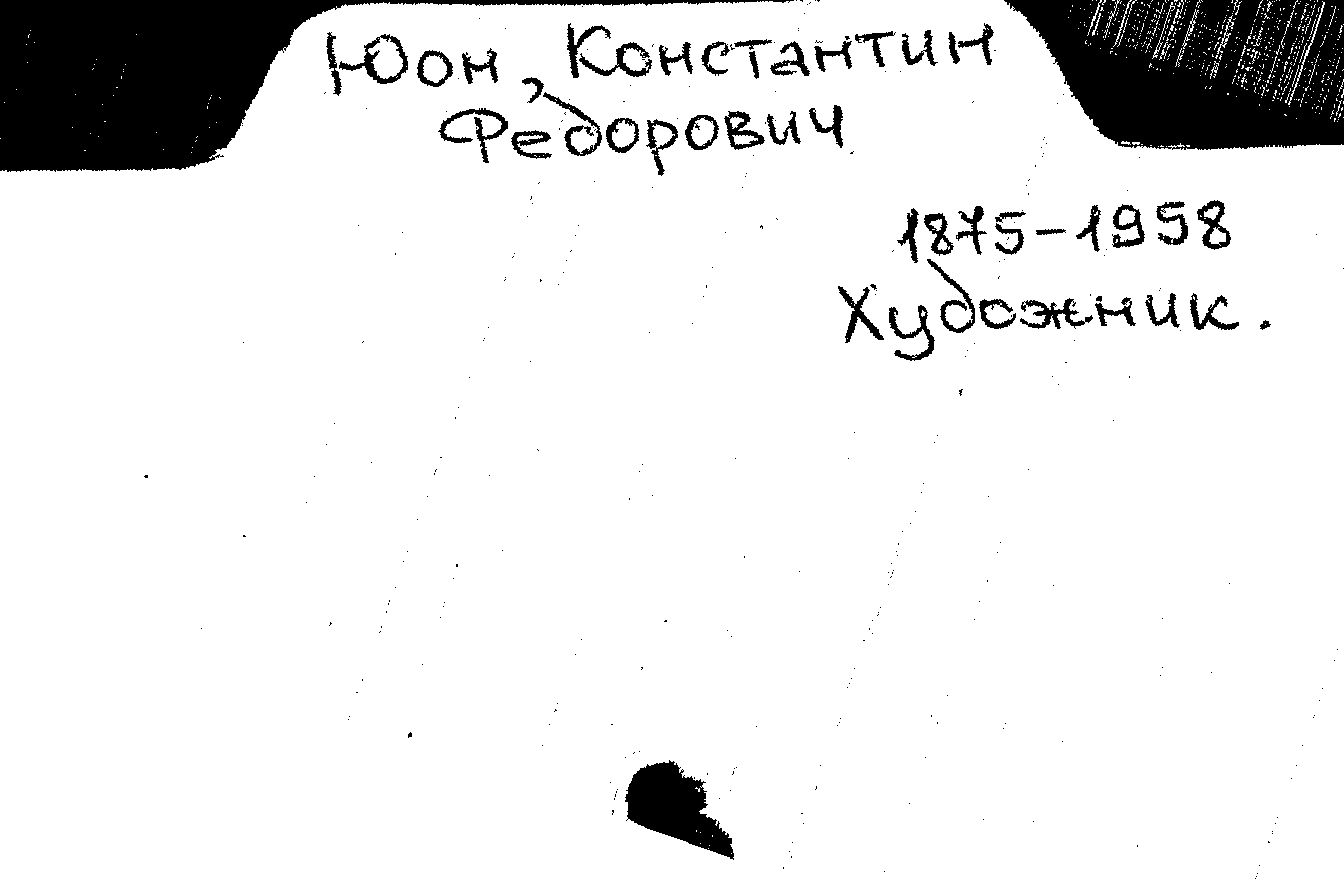 Юон, Константин
Федорович
1875-1958
Художник.